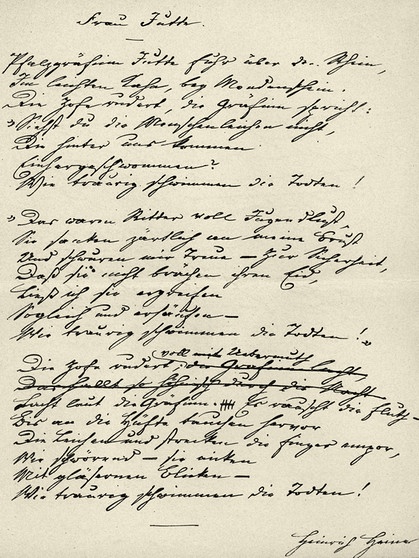 Frau Jutte.
Pfalzgräfin Jutte fuhr über den Rhein,
Im leichten Kahn, bey Mondenschein.
Die Zofe rudert, die Gräfinn spricht:
„Siehst du die Menschenleichen nicht,
Die hinter uns kommen
Einhergeschwommen?
Wie traurig schwimmen die Todten!
„Das waren Ritter voll Jugendlust,
Sie sanken zärtlich an meine Brust
Und schwuren mir Treue – Zur Sicherheit,
Daß sie nicht brächen ihren Eid,
Ließ ich sie ergreifen
Sogleich und ersäufen –
Wie traurig schwimmen die Todten!“
voll mit Uebermuth
Die Zofe rudert die Gräfinn lacht,
Das hallt so durch die Nacht
lacht laut die Gräfinn. Es rauscht die Fluth –
Bis an die Hüfte tauchen hervor
Die Leichen und strecken die Finger empor,
Wie schwörend – sie nicken
Mit gläsernen Blicken –
Wie traurig schwimmen die Todten!
Heinrich Heine